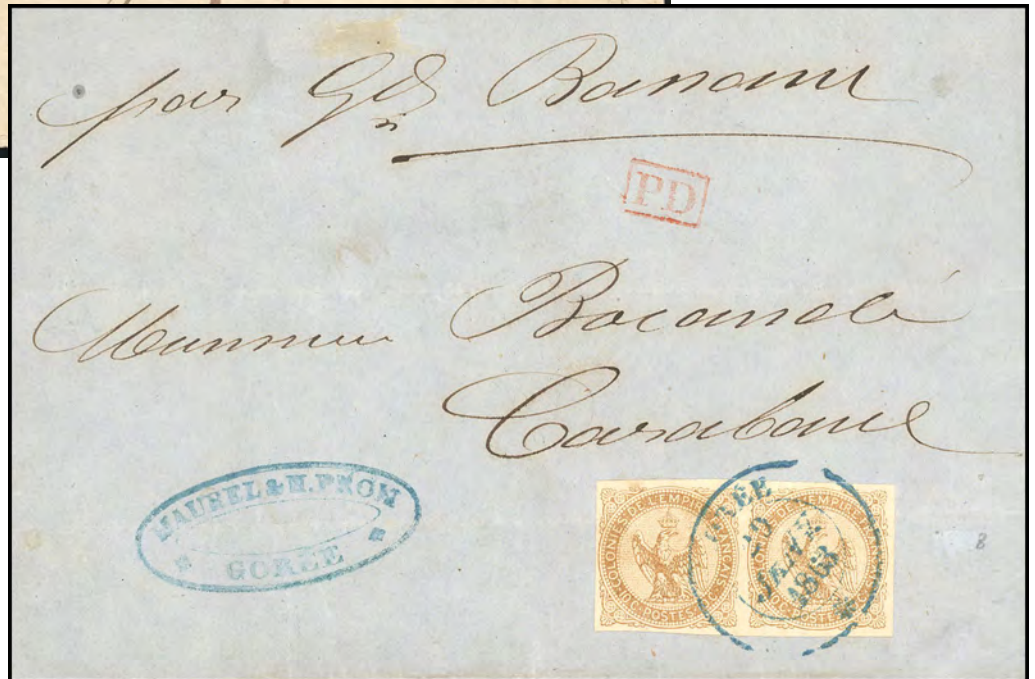 par Gtte Banane
PD
Monsieur Bocandé
Carabane
MAUREL & H. PROM
GORÉE
COLONIES DE L'EMPIRE FRANÇAIS
10 C. POSTES
COLONIES DE L'EMPIRE FRANÇAIS
10 C. POSTES
GORÉE
JANV.
1863